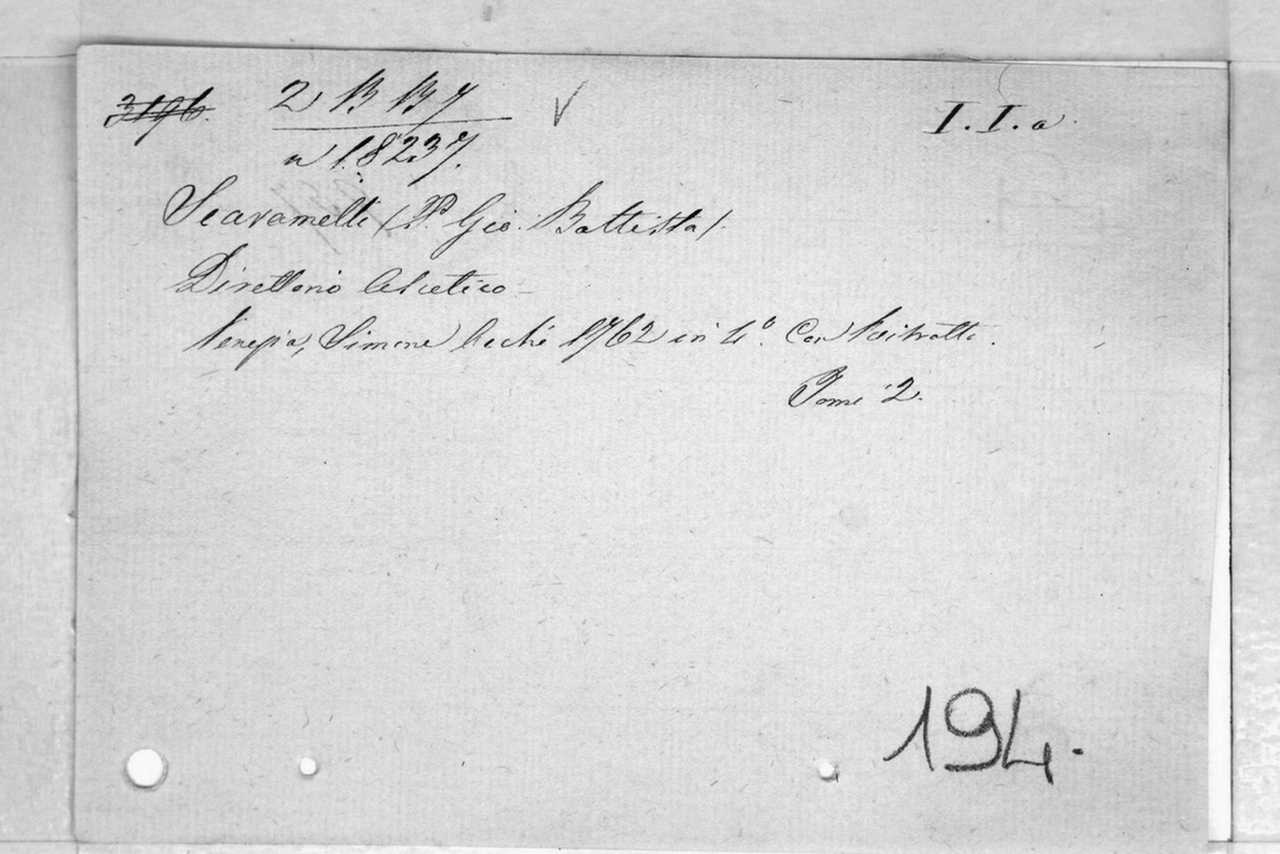 3196. 2 B B 7 I. I. a.
n 18237.
Scaramelli (P. Gio. Battista).
Direttorio Ascetico
Venezia, Simone Occhi 1762 in 4º. Con Ritratto.
Tomi 2.
194.